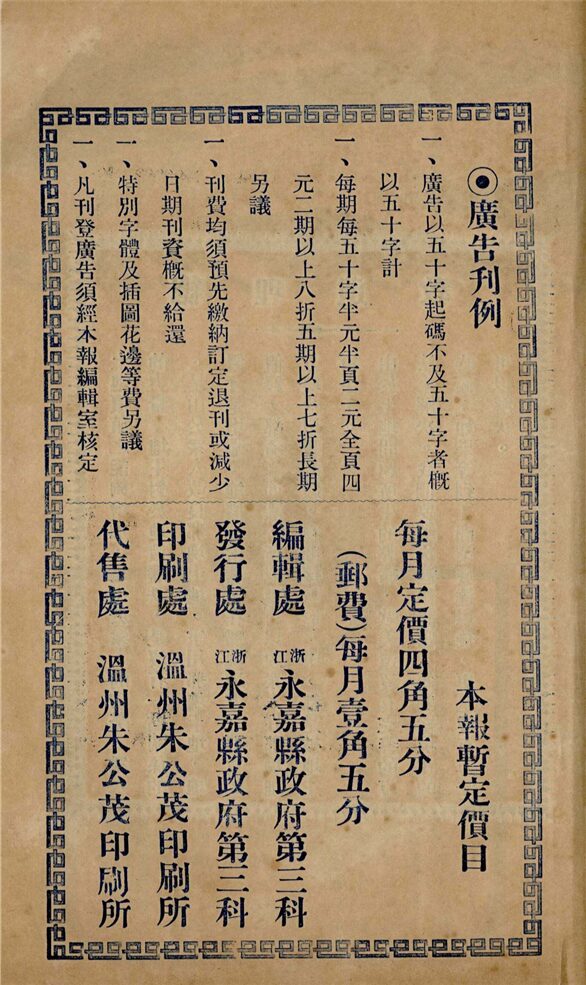 ◉廣告刊例
一、廣告以五十字起碼不及五十字者概
以五十字計
一、每期每五十字半元半頁二元全頁四
元二期以上八折五期以上七折長期
另議
一、刊費均須預先繳納訂定退刊或減少
日期刊資概不給還
一、特別字體及插圖花邊等費另議
一、凡刊登廣告須經本報編輯室核定
本報暫定價目
每月定價四角五分
(郵費)每月壹角五分
編輯處 浙江永嘉縣政府第三科
發行處 浙江永嘉縣政府第三科
印刷處 溫州朱公茂印刷所
代售處 溫州朱公茂印刷所